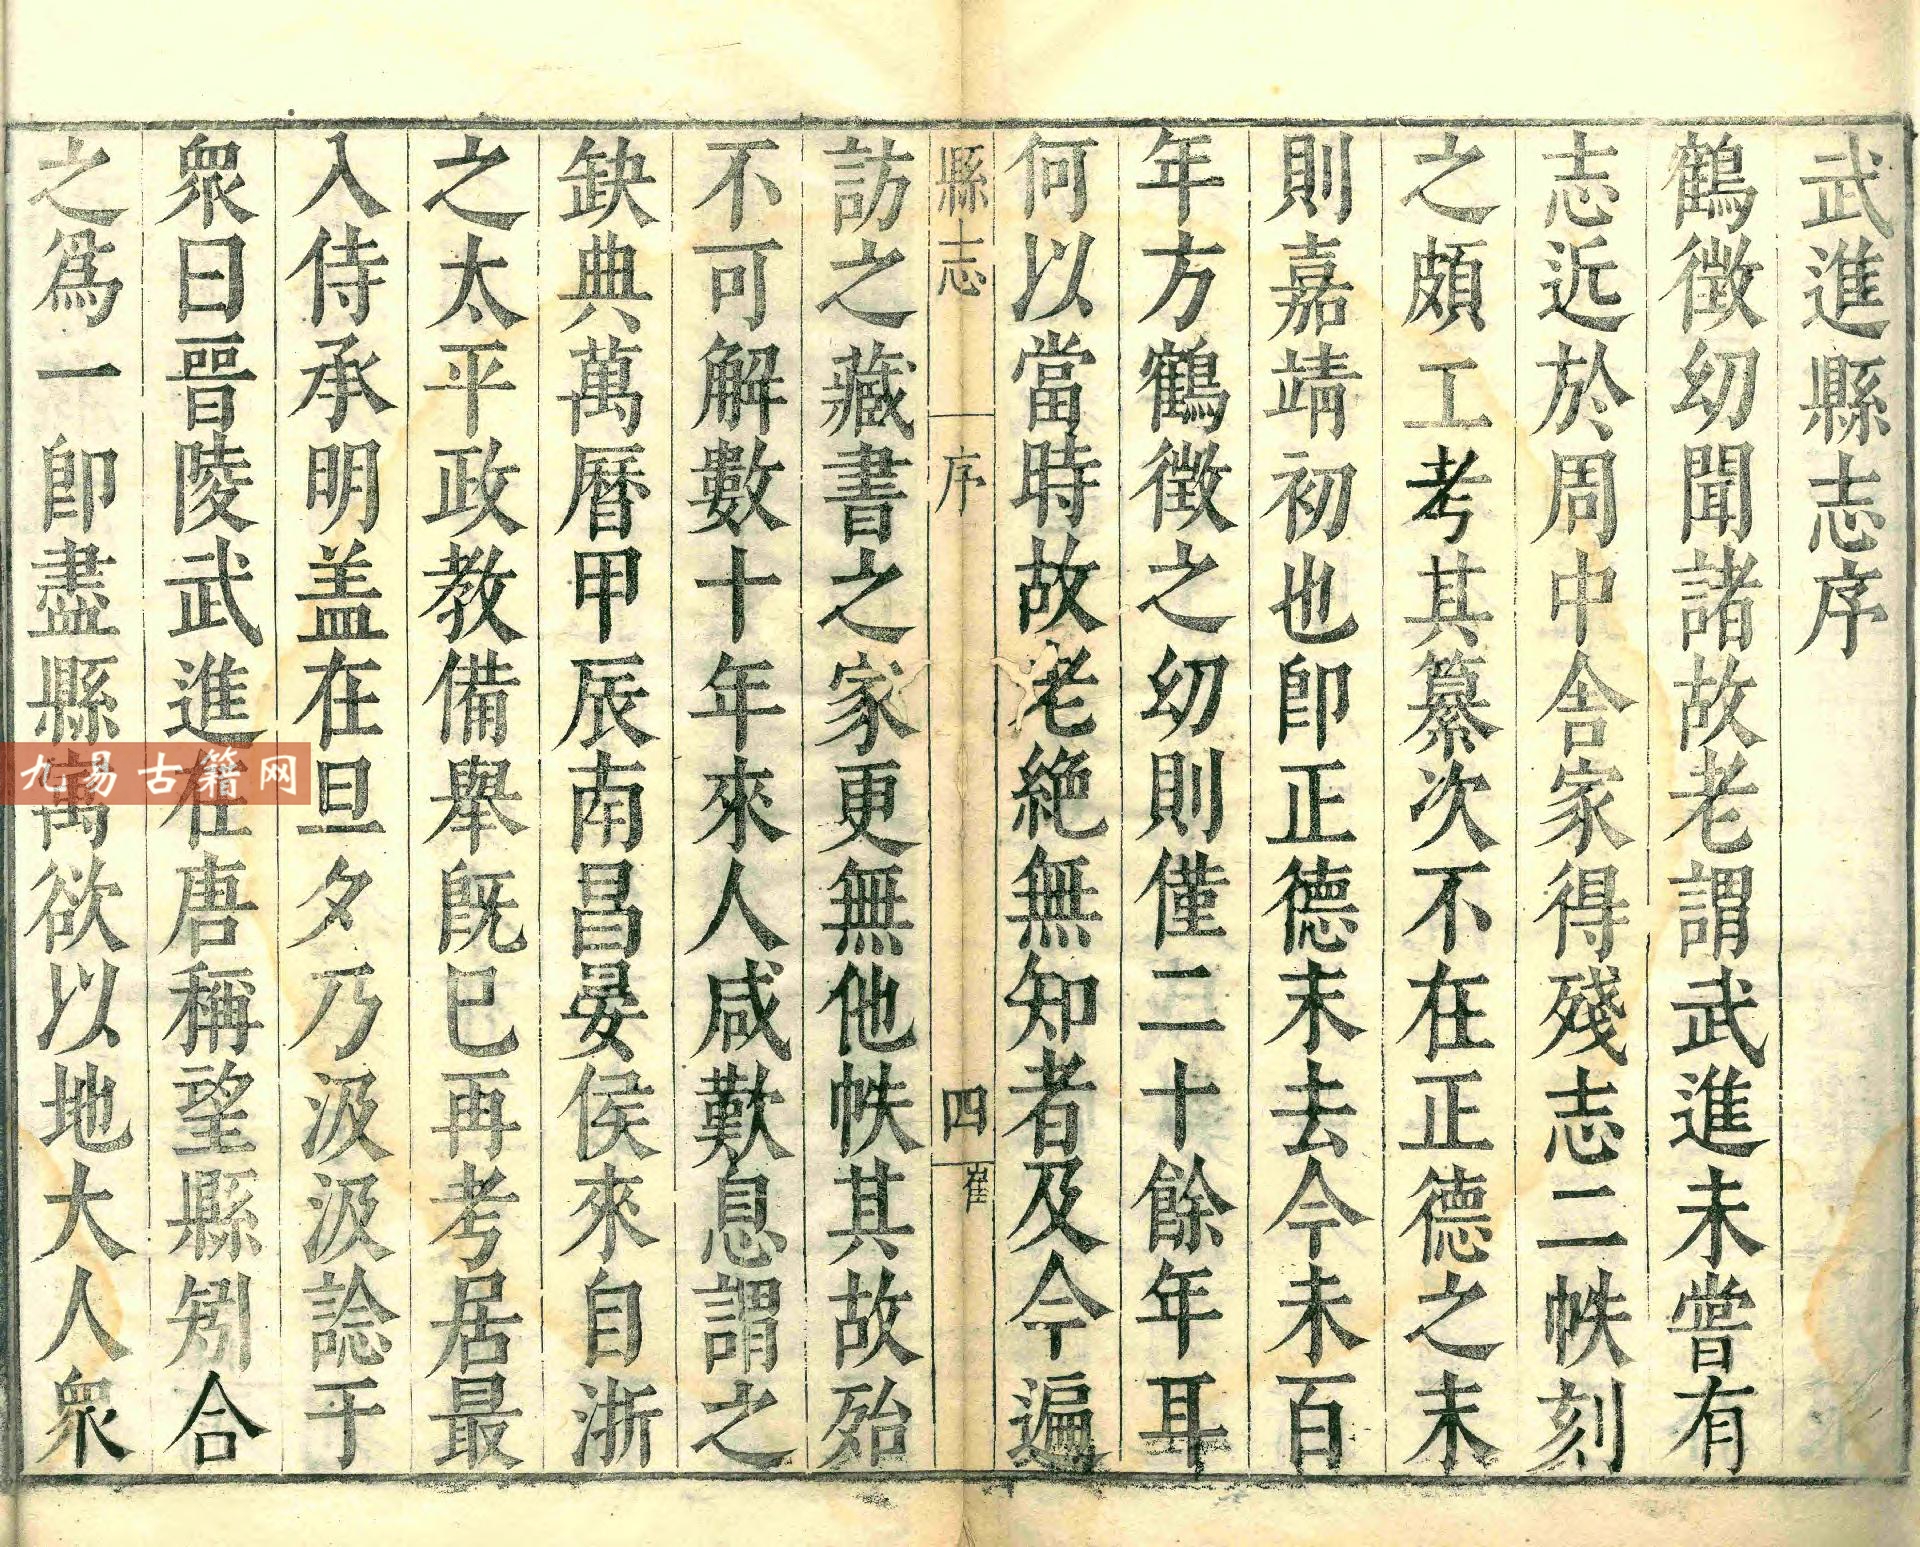 武進縣志序
鶴徵幼聞諸故老謂武進未嘗有
志近於周中舍家得殘志二帙刻
之頗工考其纂次不在正德之末
則嘉靖初也即正德末去今未百
年方鶴徵之幼則僅二十餘年耳
何以當時故老絶無知者及今遍
縣志
序
四
崔
訪之藏書之家更無他帙其故殆
不可解數十年來人咸歎息謂之
缺典萬曆甲辰南昌晏侯來自浙
之太平政教備舉旣已再考居最
入侍承明盖在旦夕乃汲汲諗于
衆曰晉陵武進在唐稱望縣矧合
之爲一即盡縣寓欲以地大人衆
九易古籍网